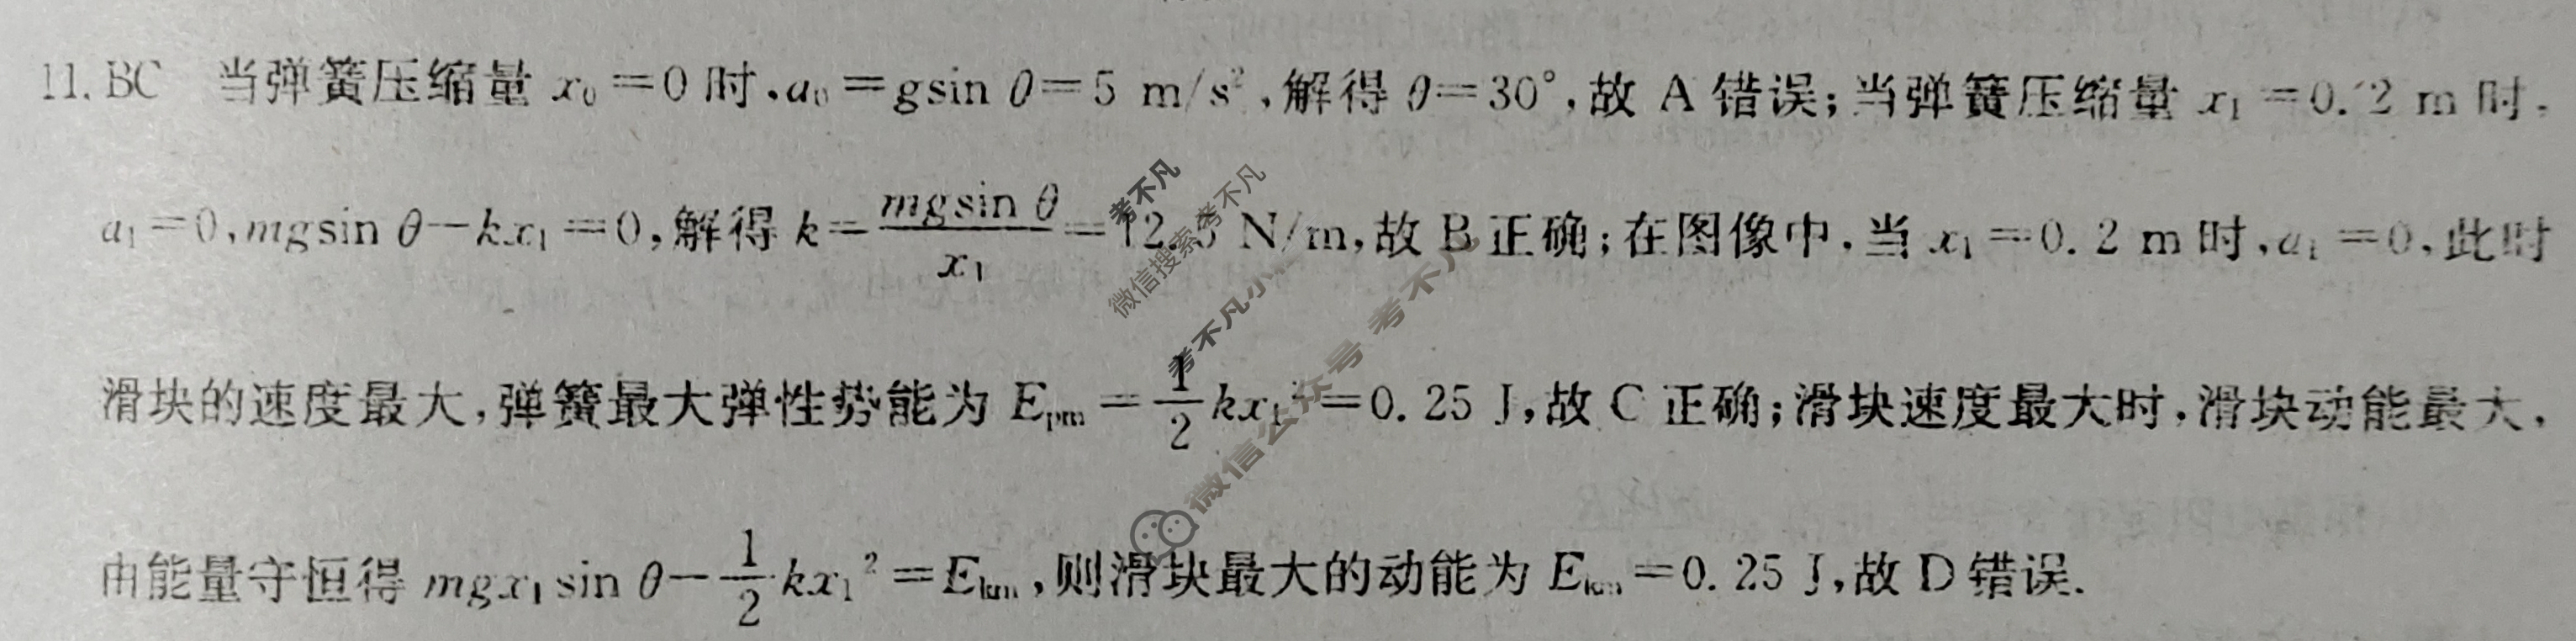 11. BC 当弹簧压缩量 x₀=0 时,a₀=gsin θ=5 m/s²,解得 θ=30°,故 A 错误;当弹簧压缩量 x₁=0.2 m 时,
a₁=0,mgsin θ-kx₁=0,解得 k=\frac{mgsin θ}{x₁}=12.5 N/m,故 B 正确;在图像中,当 x₁=0.2 m 时,a₁=0,此时
滑块的速度最大,弹簧最大弹性势能为 Eₚₘ=\frac{1}{2}kx₁²=0.25 J,故 C 正确;滑块速度最大时,滑块动能最大,
由能量守恒得 mgx₁sin θ-\frac{1}{2}kx₁²=Eₖₘ,则滑块最大的动能为 Eₖₘ=0.25 J,故 D 错误.
考不凡
微信搜索考不凡
考不凡小
微信公众号 考不凡